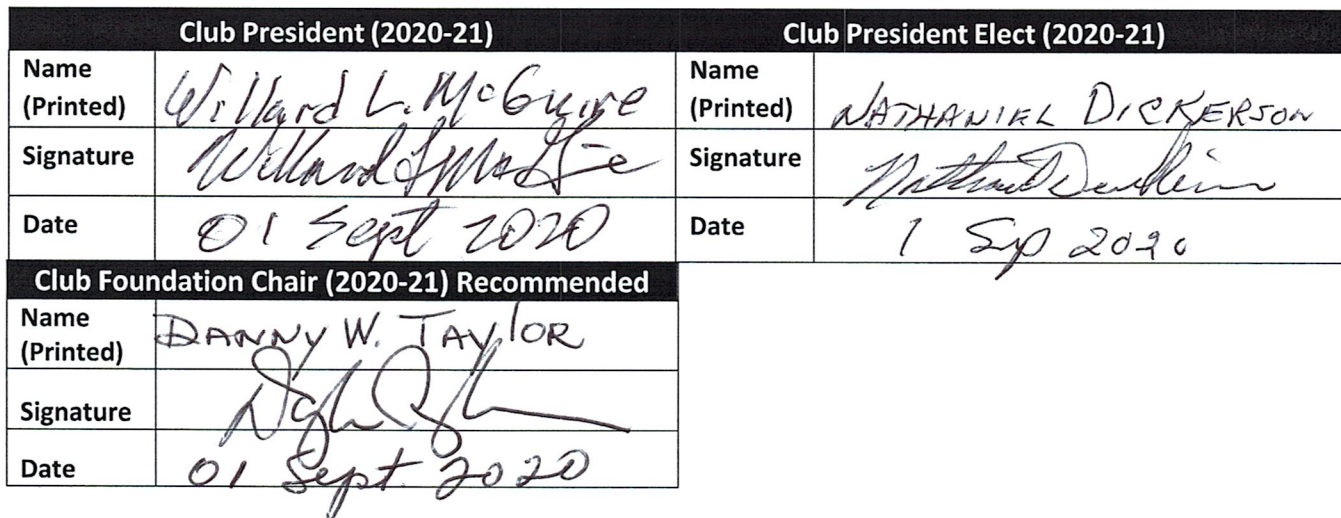 Club President (2020-21)
Name (Printed) Willard L. McGuire
Signature
Date 01 Sept 2020
Club President Elect (2020-21)
Name (Printed) NATHANIEL DICKERSON
Signature
Date 1 Sep 2020
Club Foundation Chair (2020-21) Recommended
Name (Printed) DANNY W. TAYLOR
Signature
Date 01 Sept. 2020